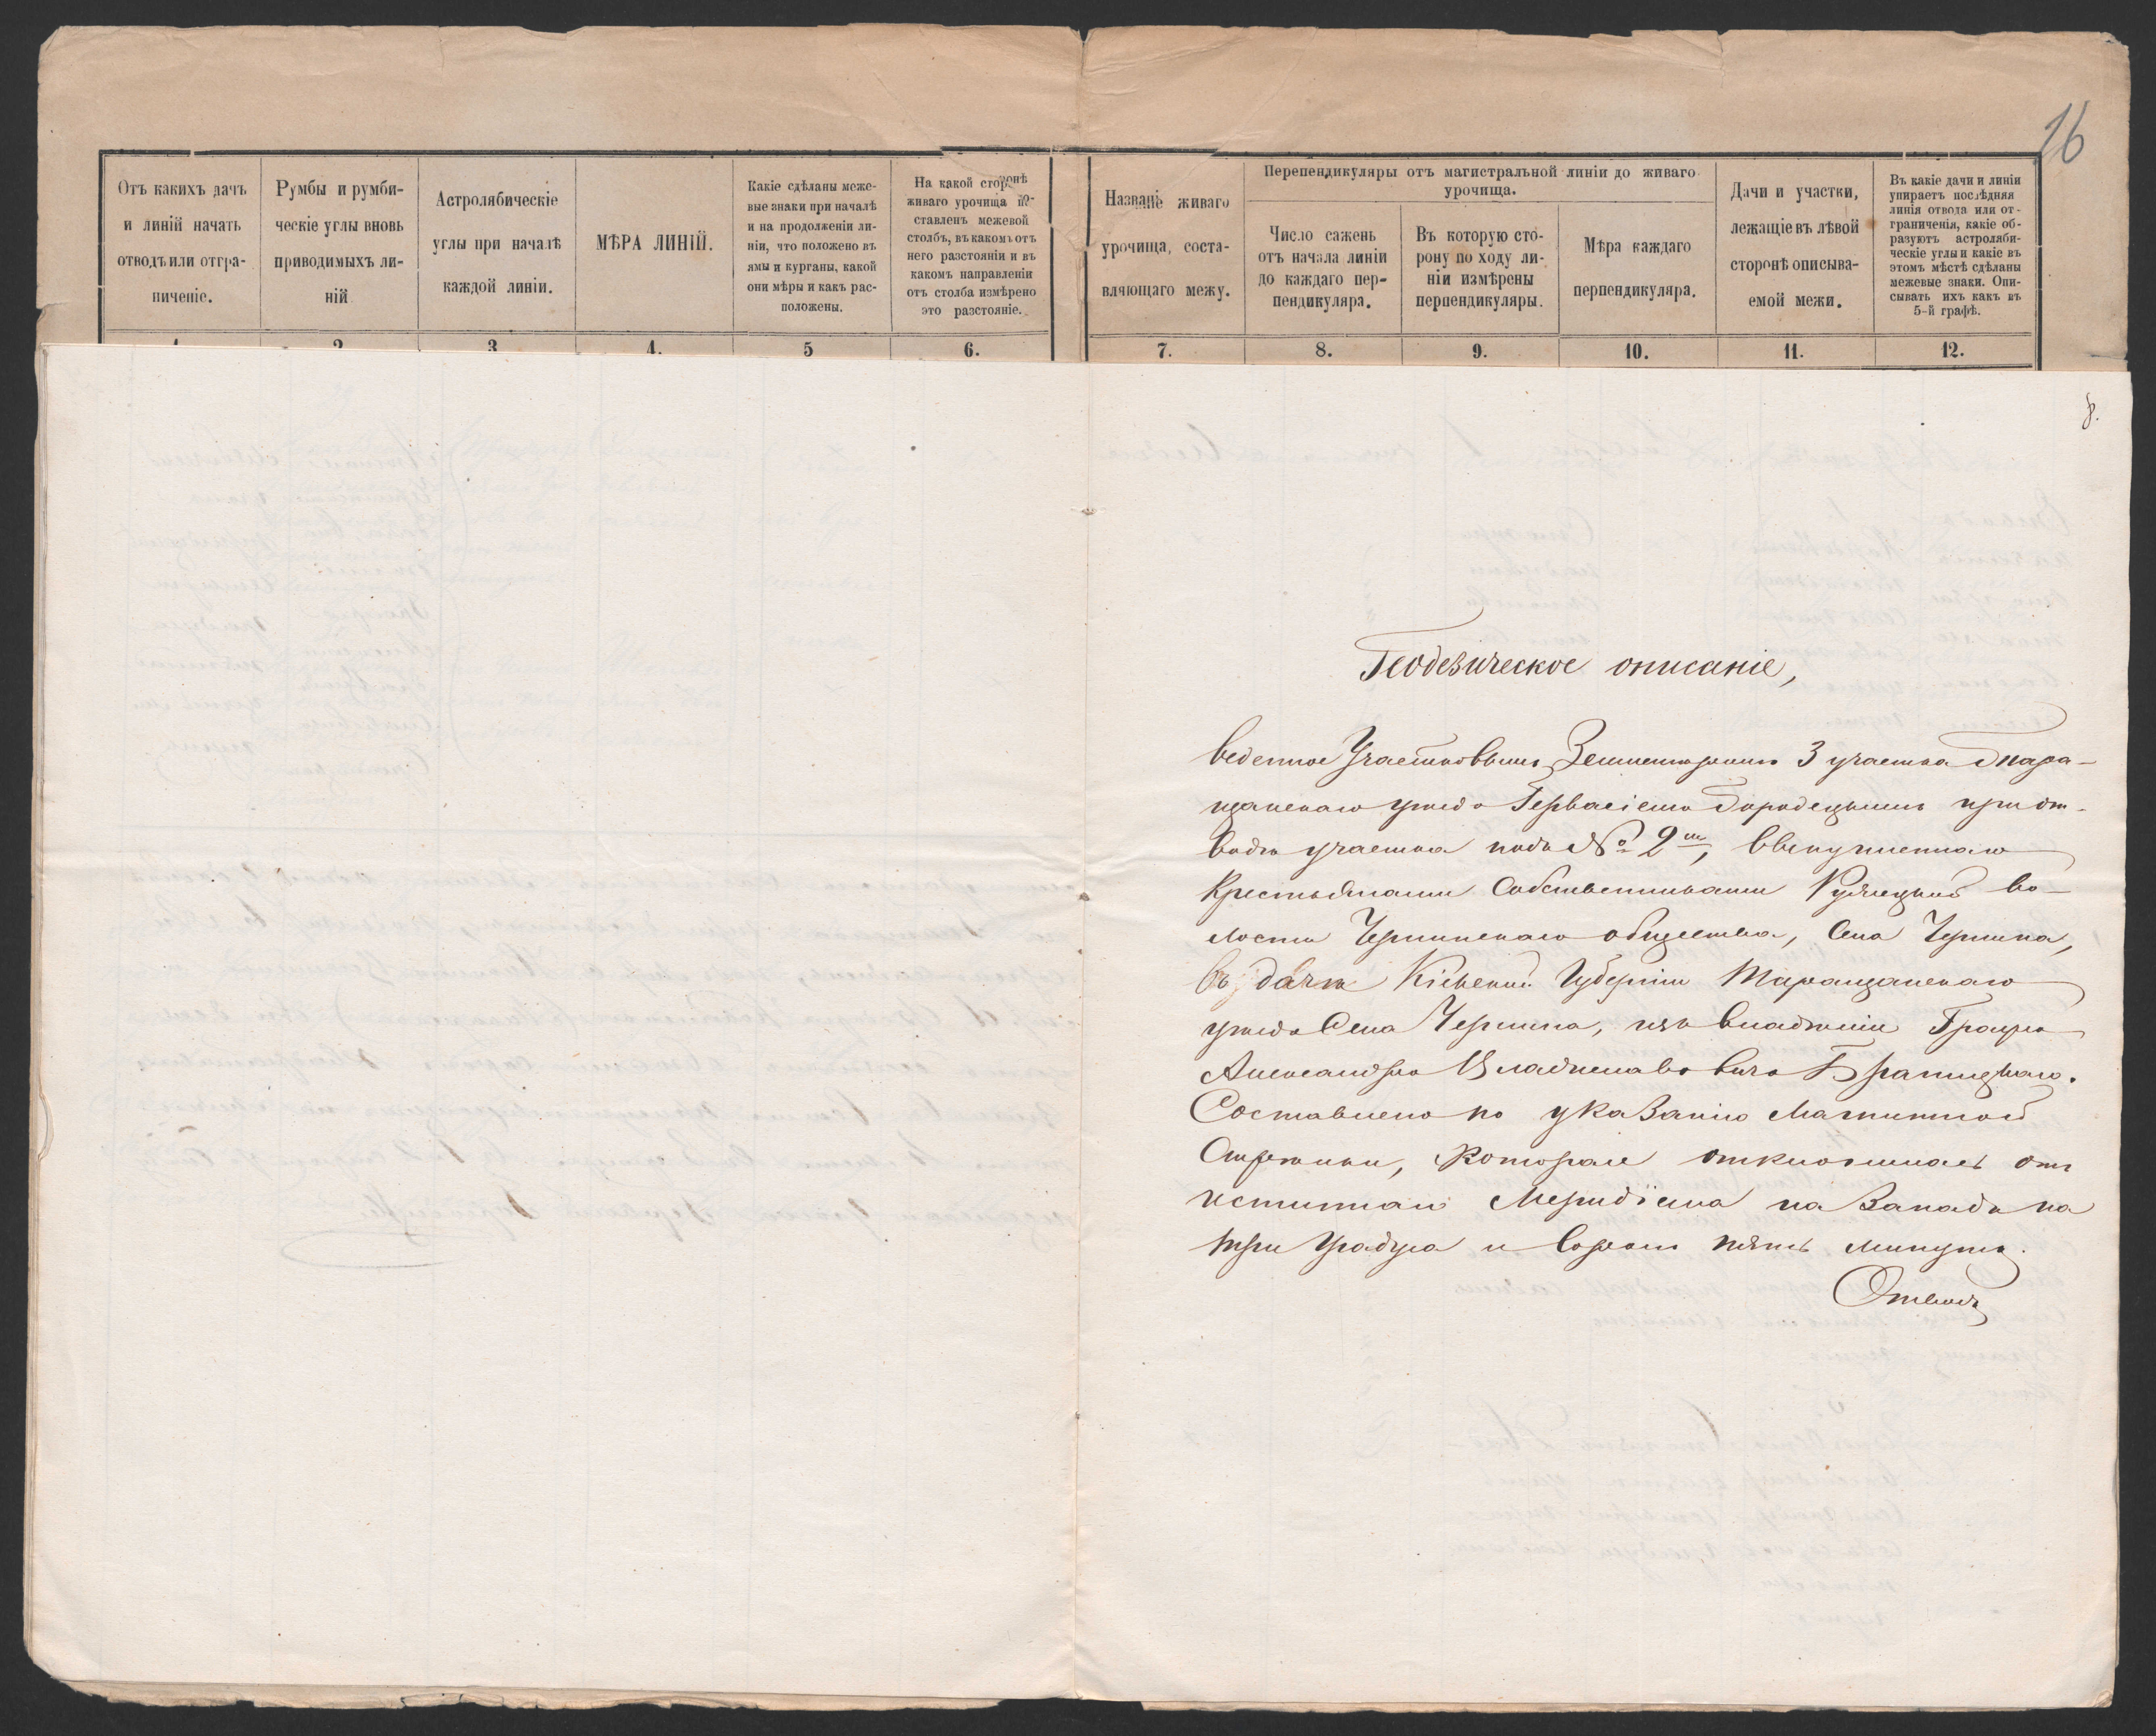 16
Отъ какихъ дачъ
и линій начать
отводъ или отгра-
ниченіе.
Румбы и румби-
ческіе углы вновь
приводимыхъ ли-
ній
Астролябическіе
углы при началѣ
каждой линіи.
МѢРА ЛИНІЙ.
Какіе сдѣланы меже-
вые знаки при началѣ
и на продолженіи ли-
ніи, что положено въ
ямы и курганы, какой
они мѣры и какъ рас-
положены.
На какой сторонѣ
живаго урочища по-
ставленъ межевой
столбъ, въ какомъ отъ
него разстояніи и въ
какомъ направленіи
отъ столба измѣрено
это разстояніе.
Названіе живаго
урочища, соста-
вляющаго межу.
Перепендикуляры отъ магистральной линіи до живаго
урочища.
Число сажень
отъ начала линіи
до каждаго пер-
пендикуляра.
Въ которую сто-
рону по ходу ли-
ніи измѣрены
перпендикуляры.
Мѣра каждаго
перпендикуляра.
Дачи и участки,
лежащіе въ лѣвой
сторонѣ описыва-
емой межи.
Въ какіе дачи и линіи
упираетъ послѣдняя
линія отвода или от-
граниченія, какіе об-
разуютъ астроляби-
ческіе углы и какіе въ
этомъ мѣстѣ сдѣланы
межевые знаки. Опи-
сывать ихъ какъ въ
5-й графѣ.
1 2 3 4. 5 6. 7. 8. 9. 10. 11. 12.
8.
Геодезическое описаніе,
веденное Участковымъ Землемѣромъ 3 участка Тара-
щанскаго уѣзда Гервасіемъ Городецкимъ при от-
водѣ участка подъ № 2мъ, выкупленнаго
Крестьянами Собственниками Кучицкой во-
лости Чернинскаго общества, Села Чернина,
въ дачѣ Кіевской Губерніи Таращанскаго
уѣзда Села Чернина, изъ владѣнія Графа
Александра Владиславовича Браницкаго.
Составлено по указанію Магнитной
Стрѣлки, которая отклонилась отъ
истиннаго Меридіана на Западъ на
три Градуса и Сорокъ пять минутъ.
Отводъ